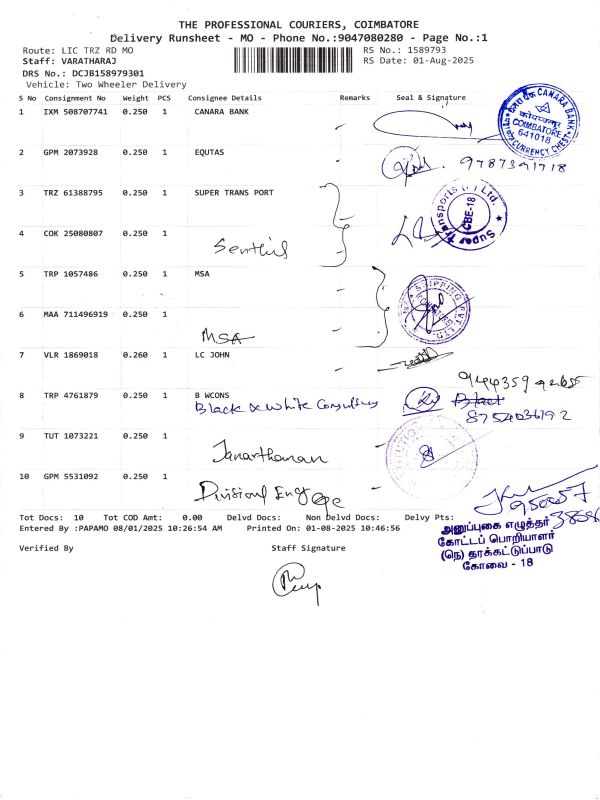 THE PROFESSIONAL COURIERS, COIMBATORE
Delivery Runsheet - MO - Phone No.:9047080280 - Page No.:1
Route: LIC TRZ RD MO RS No.: 1589793
Staff: VARATHARAJ RS Date: 01-Aug-2025
DRS No.: DCJB158979301
Vehicle: Two Wheeler Delivery
S No Consignment No Weight PCS Consignee Details Remarks Seal & Signature
1 IXM 508707741 0.250 1 CANARA BANK
CANARA BANK
COIMBATORE
641018
CURRENCY CHEST
2 GPM 2073928 0.250 1 EQUTAS
9787391718
3 TRZ 61388795 0.250 1 SUPER TRANS PORT
Super Transports (P) Ltd.
CBE-18
4 COK 25080807 0.250 1
Senthil
5 TRP 1057486 0.250 1 MSA
SHIPPING PVT. LTD.
6 MAA 711496919 0.250 1
MSA
7 VLR 1869018 0.260 1 LC JOHN
8 TRP 4761879 0.250 1 B WCONS
Black & White Consulting
8754036192
9 TUT 1073221 0.250 1
Janarthanan
10 GPM 5531092 0.250 1
Divisional Eng
Tot Docs: 10 Tot COD Amt: 0.00 Delvd Docs: Non Delvd Docs: Delvy Pts:
Entered By :PAPAMO 08/01/2025 10:26:54 AM Printed On: 01-08-2025 10:46:56
அனுப்புகை எழுத்தர்
கோட்டப் பொறியாளர்
(நெ) தரக்கட்டுப்பாடு
கோவை - 18
Verified By Staff Signature